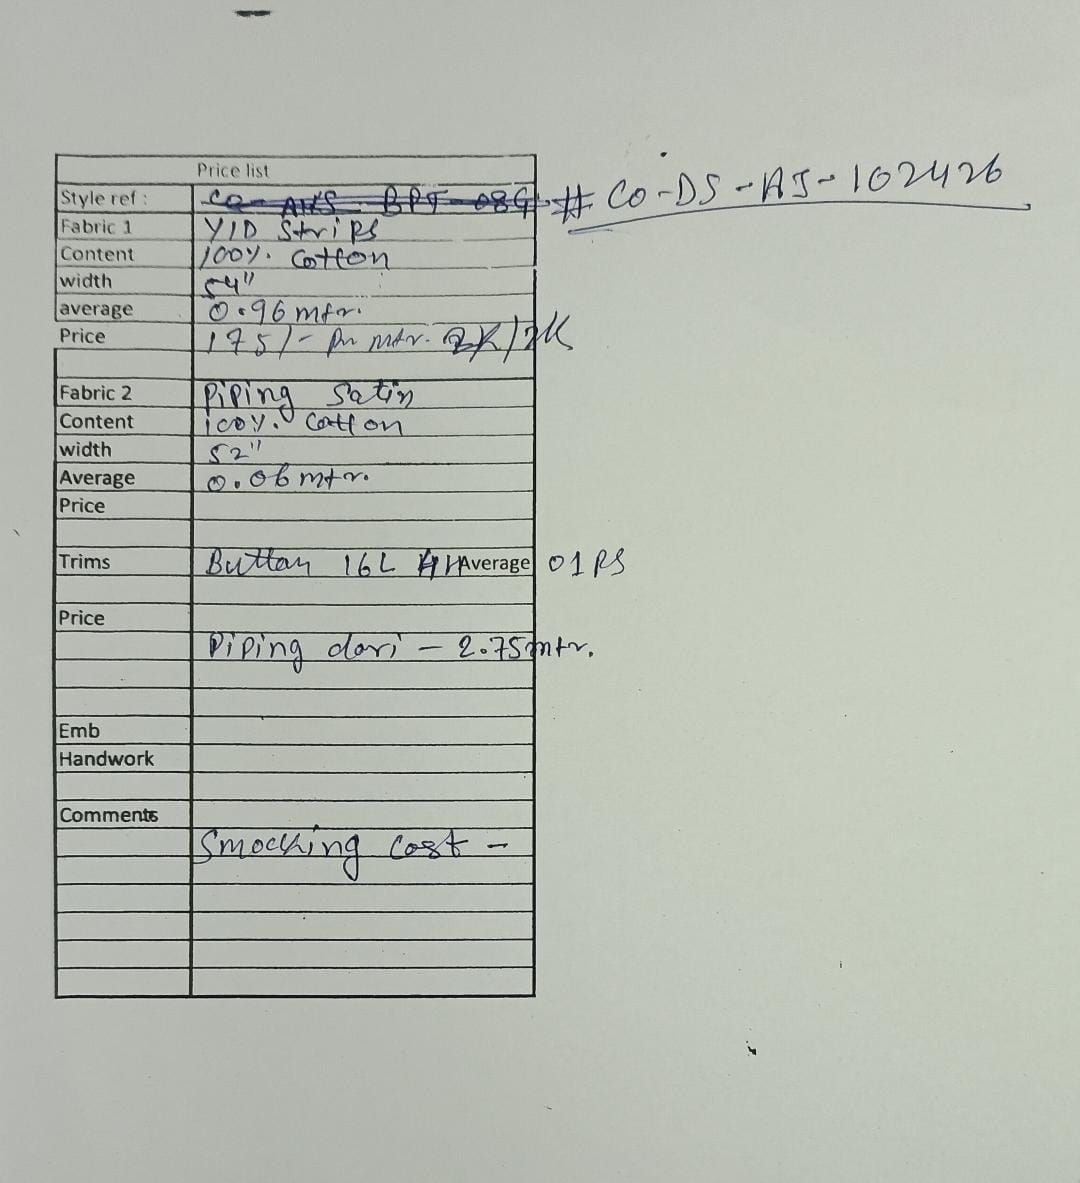 Price list
Style ref : # CO-DS-AJ-102426
Fabric 1 Y/D Strips
Content 100% Cotton
width 54"
average 0.96 mtr.
Price 175/- Per mtr. 2K/2K
Fabric 2 Piping Satin
Content 100% Cotton
width 52"
Average 0.06 mtr.
Price
Trims Button 16L Average 01 PS
Price
Piping dori - 2.75 mtr.
Emb
Handwork
Comments
Smocking Cost -